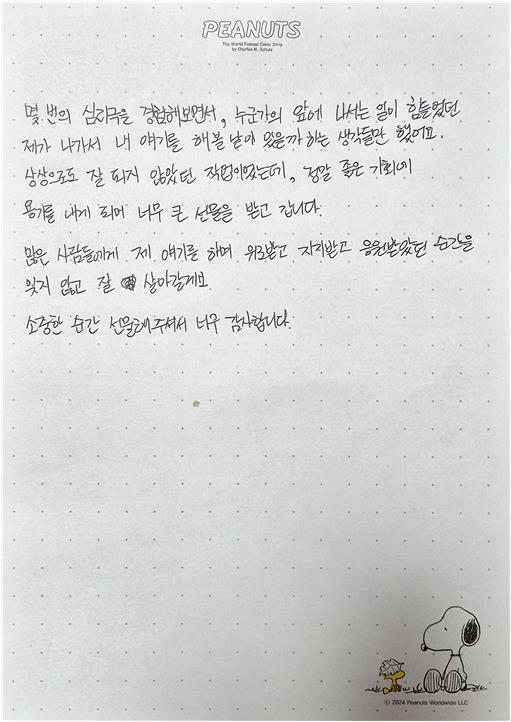 PEANUTS
The World Famous Comic Strip
by Charles M. Schulz
몇 번의 심리극을 경험해보면서, 누군가의 앞에 나서는 일이 힘들었던
제가 나가서 내 얘기를 해볼 날이 있을까 하는 생각들만 했어요.
상상으로도 잘 되지 않았던 작업이었는데, 정말 좋은 기회에
용기를 내게 되어 너무 큰 선물을 받고 갑니다.
많은 사람들에게 제 얘기를 하며 위로받고 지지받고 응원받았던 순간을
잊지 않고 잘 살아갈게요
소중한 순간 선물해주셔서 너무 감사합니다.
© 2024 Peanuts Worldwide LLC